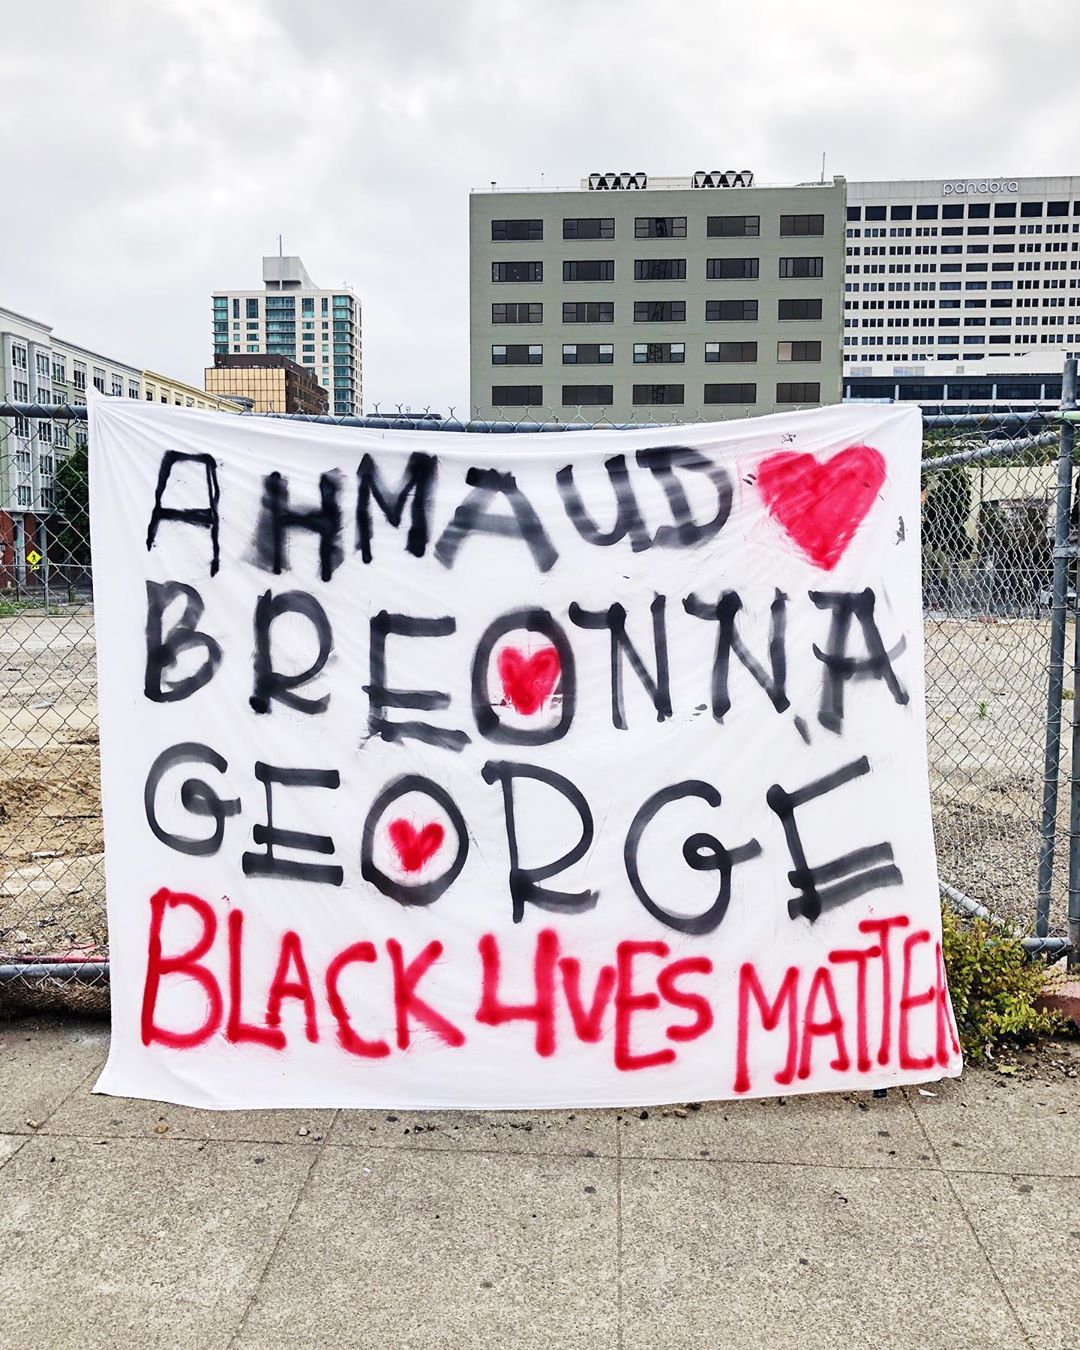 pandora
AHMAUD
BREONNA
GEORGE
BLACK LIVES MATTER